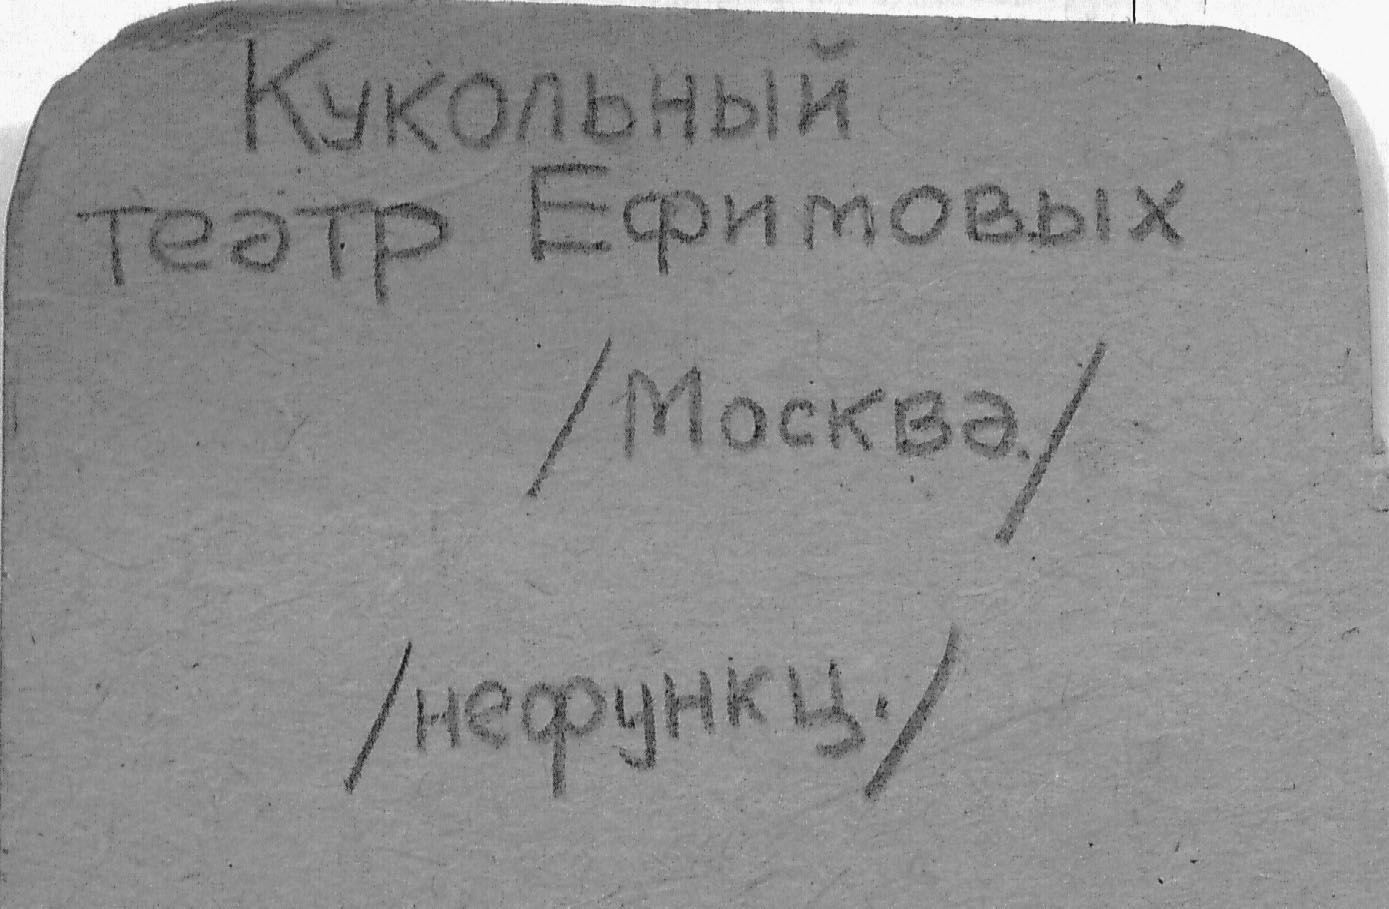 Кукольный
театр Ефимовых
/Москва./
/нефункц./